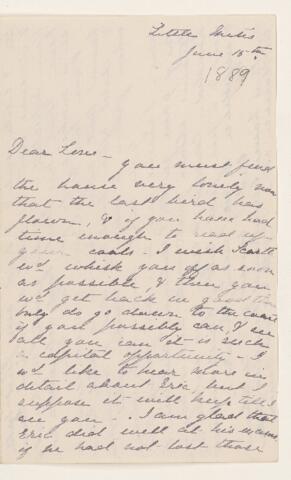 Little Metis
June 15th
1889
Dear Lou – you must find
the house very lonely now
that the last bird has
flown, & if you have had
time enough to read up
coals – I wish
wd. whisk you off as soon
as possible, & then you
wd. get back in good time
only do go down to the
if you possibly can, & see
all you can it is such
a capital opportunity – I
wd. like to hear more in
detail about Eric, but I
suppose it will keep till I
see you – . I am glad that
Eric did well at his exams
if he had not lost those